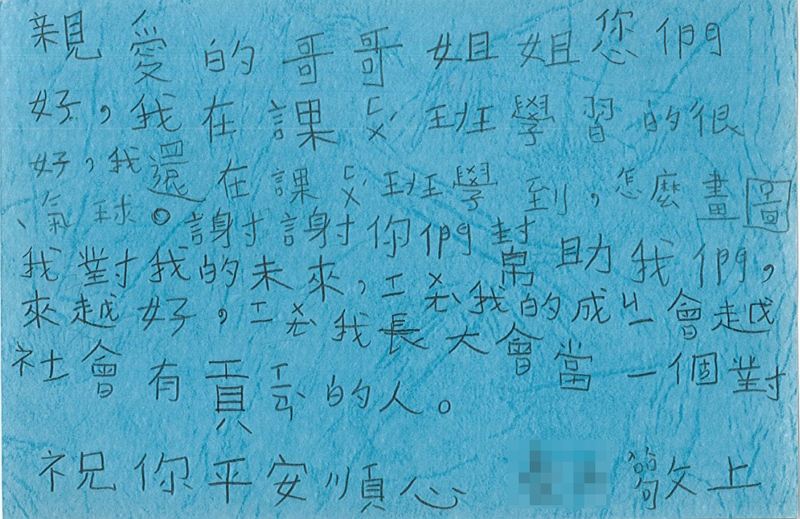 親愛的哥哥姐姐您們
好，我在課ㄈㄨˇ班學習的很
好，我還在課ㄈㄨˇ班學到，怎麼畫圖
、氣球。謝謝你們幫助我們，
我對我的未來，ㄒㄧㄨㄤˋ我的成ㄐㄧ會越
來越好，ㄒㄧㄨㄤˋ我長大會當一個對
社會有貢ㄒㄧㄢˋ的人。
祝你平安順心 敬上